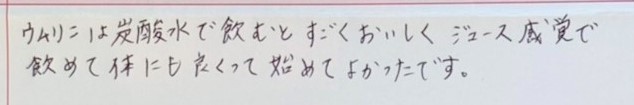 ウムリンは炭酸水で飲むとすごくおいしくジュース感覚で
飲めて体にも良くって始めてよかったです。